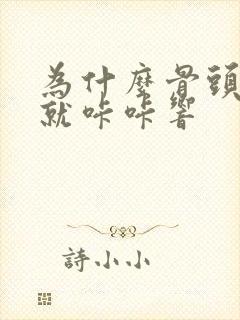 為什麼骨頭
就咔咔響
詩小小